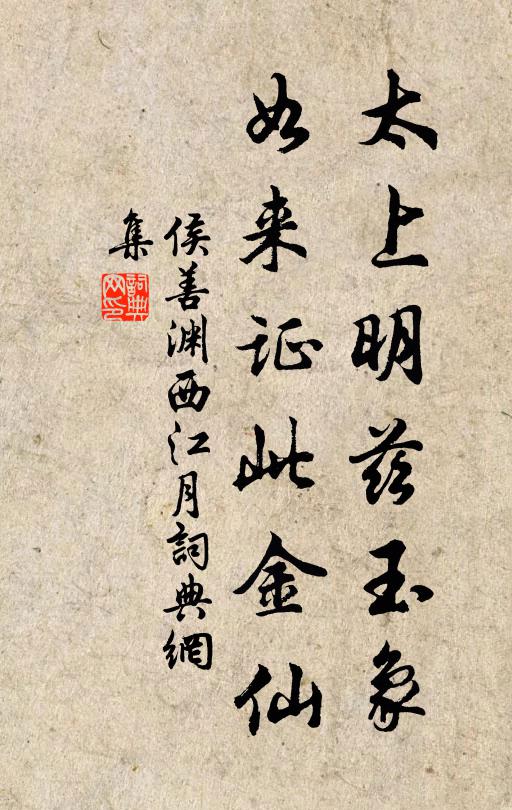 太上明茲玉象
如来证此金仙
侯善渊西江月詞典網
集
詞典
网印